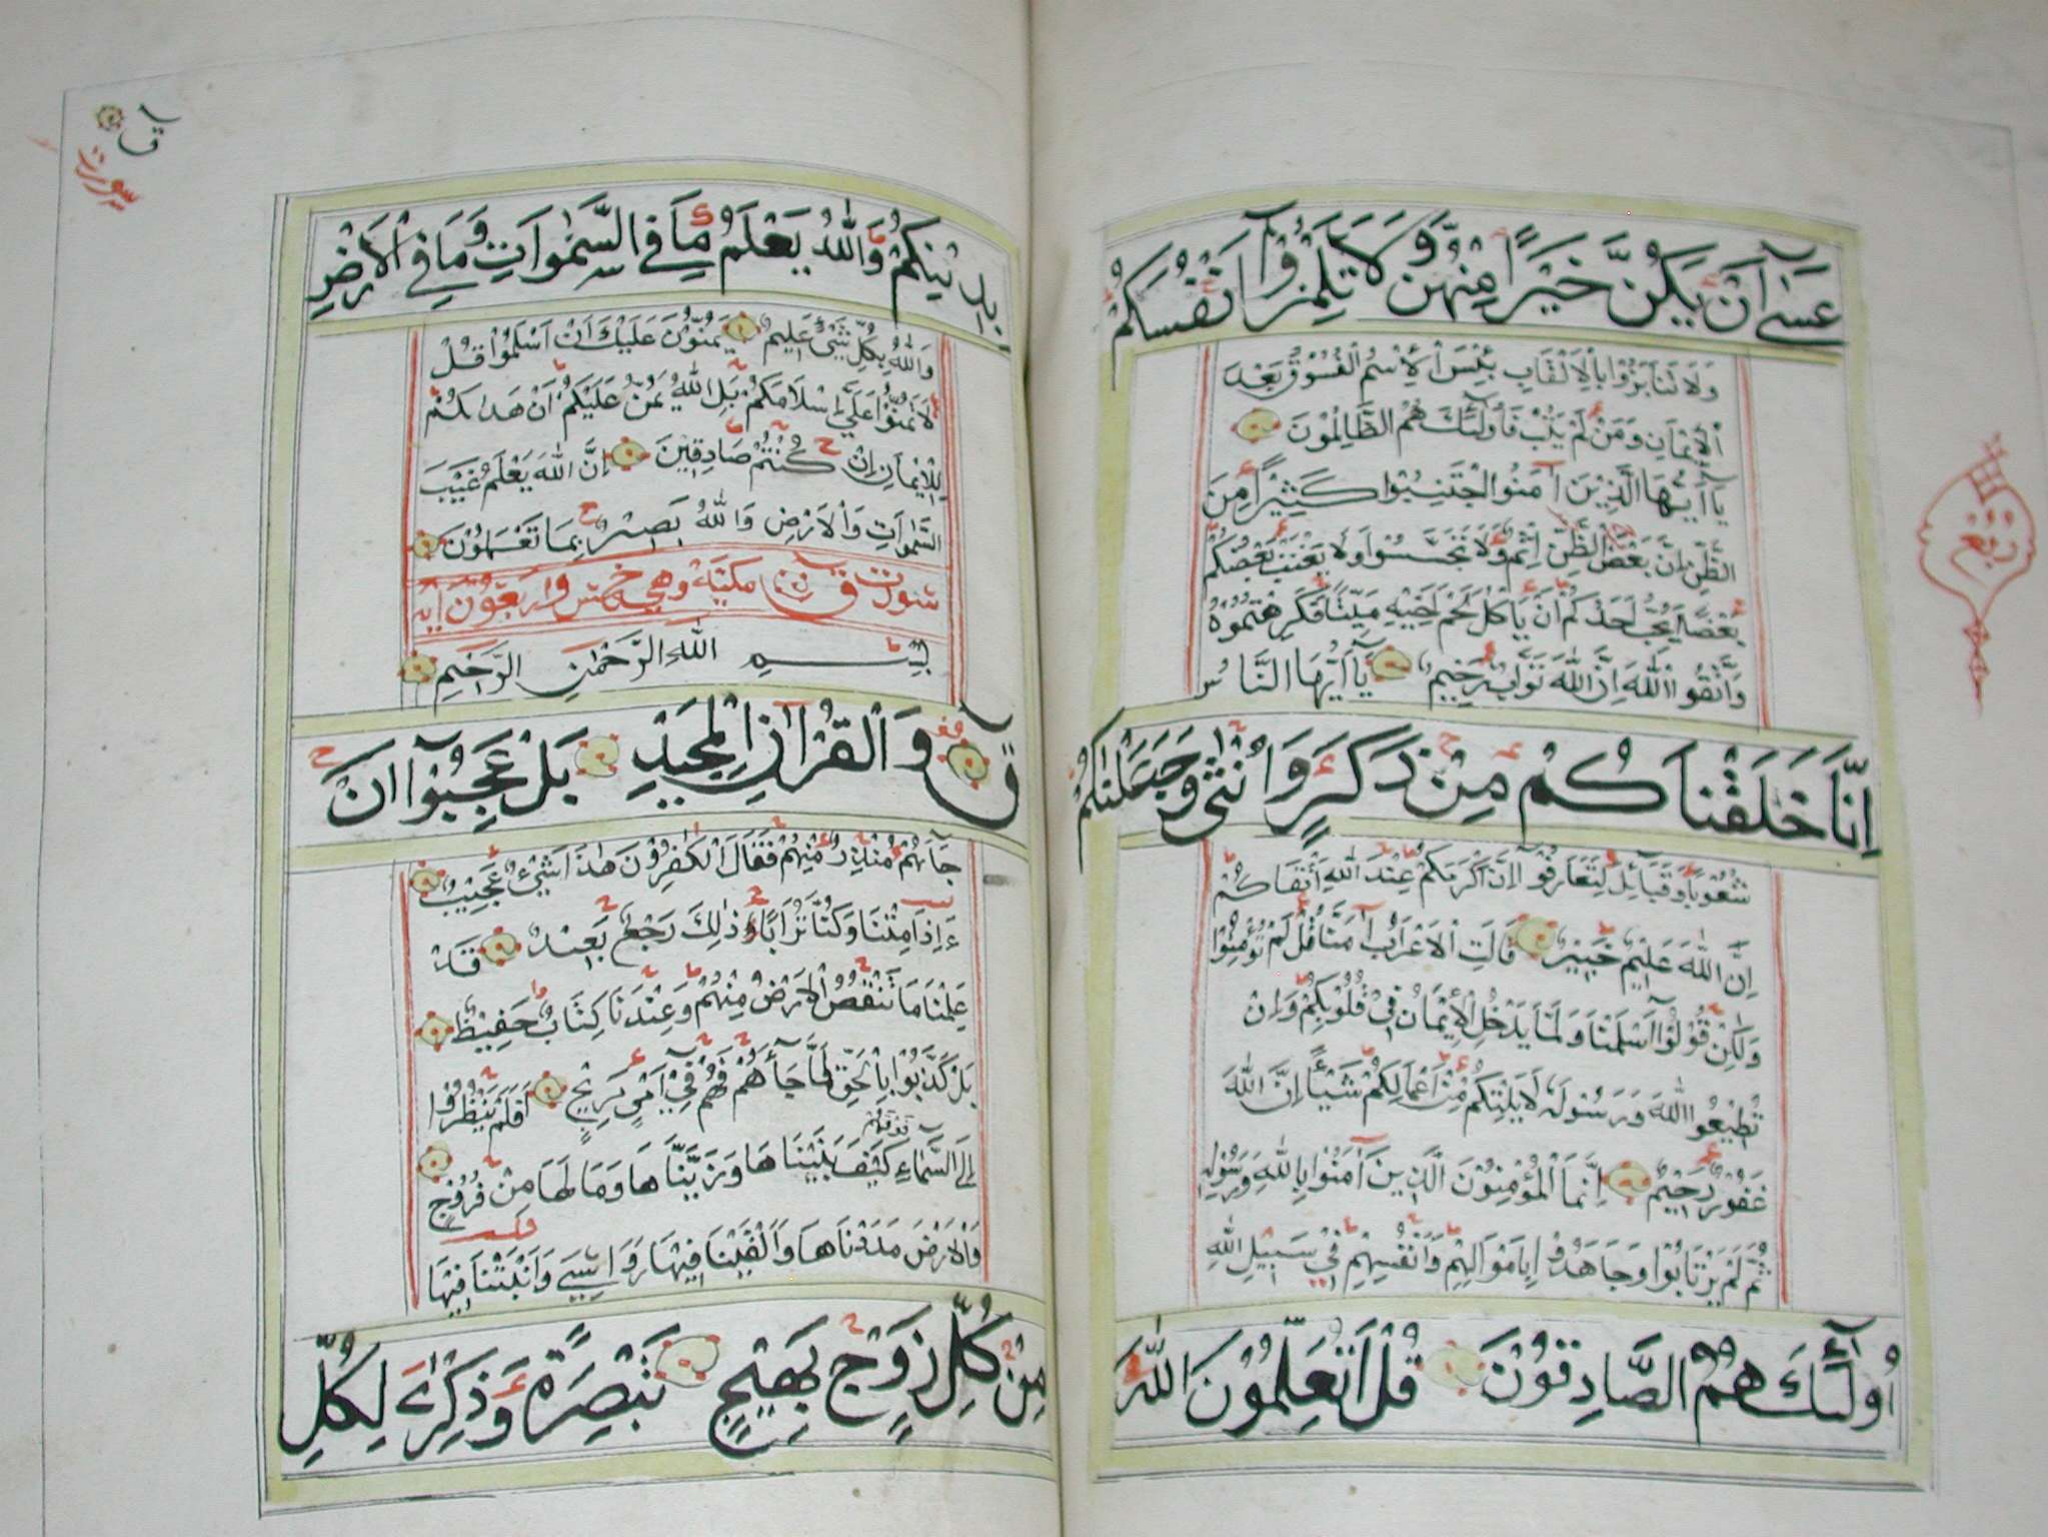 عَسَىٰ أَنْ يَكُنَّ خَيْرًا مِنْهُنَّ وَلَا تَلْمِزُوا أَنْفُسَكُمْ
وَلَا تَنَابَزُوا بِالْأَلْقَابِ بِئْسَ الْأِسْمُ الْفُسُوقُ بَعْدَ
الْإِيمَانِ وَمَنْ لَمْ يَتُبْ فَأُولَٰئِكَ هُمُ الظَّالِمُونَ
يَا أَيُّهَا الَّذِينَ آمَنُوا اجْتَنِبُوا كَثِيرًا مِنَ
الظَّنِّ إِنَّ بَعْضَ الظَّنِّ إِثْمٌ وَلَا تَجَسَّسُوا وَلَا يَغْتَبْ بَعْضُكُمْ
بَعْضًا أَيُحِبُّ أَحَدُكُمْ أَنْ يَأْكُلَ لَحْمَ أَخِيهِ مَيْتًا فَكَرِهْتُمُوهُ
وَاتَّقُوا اللَّهَ إِنَّ اللَّهَ تَوَّابٌ رَحِيمٌ يَا أَيُّهَا النَّاسُ
إِنَّا خَلَقْنَاكُمْ مِنْ ذَكَرٍ وَأُنْثَىٰ وَجَعَلْنَاكُمْ
شُعُوبًا وَقَبَائِلَ لِتَعَارَفُوا إِنَّ أَكْرَمَكُمْ عِنْدَ اللَّهِ أَتْقَاكُمْ
إِنَّ اللَّهَ عَلِيمٌ خَبِيرٌ قَالَتِ الْأَعْرَابُ آمَنَّا قُلْ لَمْ تُؤْمِنُوا
وَلَٰكِنْ قُولُوا أَسْلَمْنَا وَلَمَّا يَدْخُلِ الْإِيمَانُ فِي قُلُوبِكُمْ وَإِنْ
تُطِيعُوا اللَّهَ وَرَسُولَهُ لَا يَلِتْكُمْ مِنْ أَعْمَالِكُمْ شَيْئًا إِنَّ اللَّهَ
غَفُورٌ رَحِيمٌ إِنَّمَا الْمُؤْمِنُونَ الَّذِينَ آمَنُوا بِاللَّهِ وَرَسُولِهِ
ثُمَّ لَمْ يَرْتَابُوا وَجَاهَدُوا بِأَمْوَالِهِمْ وَأَنْفُسِهِمْ فِي سَبِيلِ اللَّهِ
أُولَٰئِكَ هُمُ الصَّادِقُونَ قُلْ أَتُعَلِّمُونَ اللَّهَ
ربع
سورت
ق
بِدِينِكُمْ وَاللَّهُ يَعْلَمُ مَا فِي السَّمَٰوَاتِ وَمَا فِي الْأَرْضِ
وَاللَّهُ بِكُلِّ شَيْءٍ عَلِيمٌ يَمُنُّونَ عَلَيْكَ أَنْ أَسْلَمُوا قُلْ
لَا تَمُنُّوا عَلَيَّ إِسْلَامَكُمْ بَلِ اللَّهُ يَمُنُّ عَلَيْكُمْ أَنْ هَدَاكُمْ
لِلْإِيمَانِ إِنْ كُنْتُمْ صَادِقِينَ إِنَّ اللَّهَ يَعْلَمُ غَيْبَ
السَّمَٰوَاتِ وَالْأَرْضِ وَاللَّهُ بَصِيرٌ بِمَا تَعْمَلُونَ
سورت ق مكية وهي خمس واربعون اية
بِسْمِ اللَّهِ الرَّحْمَٰنِ الرَّحِيمِ
ق وَالْقُرْآنِ الْمَجِيدِ بَلْ عَجِبُوا أَنْ
جَاءَهُمْ مُنْذِرٌ مِنْهُمْ فَقَالَ الْكَٰفِرُونَ هَٰذَا شَيْءٌ عَجِيبٌ
ءَإِذَا مِتْنَا وَكُنَّا تُرَابًا ذَٰلِكَ رَجْعٌ بَعِيدٌ قَدْ
عَلِمْنَا مَا تَنْقُصُ الْأَرْضُ مِنْهُمْ وَعِنْدَنَا كِتَابٌ حَفِيظٌ
بَلْ كَذَّبُوا بِالْحَقِّ لَمَّا جَاءَهُمْ فَهُمْ فِي أَمْرٍ مَرِيجٍ أَفَلَمْ يَنْظُرُوا
فوقهم
إِلَى السَّمَاءِ كَيْفَ بَنَيْنَاهَا وَزَيَّنَّاهَا وَمَا لَهَا مِنْ فُرُوجٍ
وَالْأَرْضَ مَدَدْنَاهَا وَأَلْقَيْنَا فِيهَا رَوَاسِيَ وَأَنْبَتْنَا فِيهَا
مِنْ كُلِّ زَوْجٍ بَهِيجٍ تَبْصِرَةً وَذِكْرَىٰ لِكُلِّ